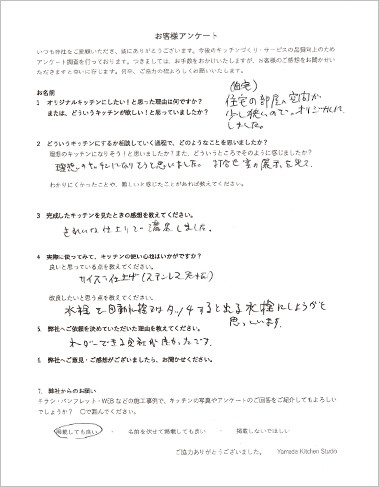 お客様アンケート
いつも弊社をご愛顧いただき、誠にありがとうございます。今後のキッチンづくり・サービスの品質向上のため
アンケート調査を行っております。つきましては、お手数をおかけいたしますが、お客様のご感想をお聞かせい
ただきますと幸いに存じます。何卒、ご協力の程よろしくお願いいたします。
お名前
(自宅)
1 オリジナルキッチンにしたい！と思った理由は何ですか？
または、どういうキッチンが欲しい！と思っていましたか？
住宅の部屋の空間が
少し狭いので。オリジナルに
しました。
2 どういうキッチンにするか相談していく過程で、どのようなことを思いましたか？
理想のキッチンになりそう！と思いましたか！また、どういうところでそのように感じましたか？
理想のキッチンになりそうと思いました。打合せ室の展示を見て
わかりにくかったことや、難しいと感じたことがあれば教えてください。
3 完成したキッチンを見たときの感想を教えてください。
きれいな仕上りで満足しました。
4 実際に使ってみて、キッチンの使い心地はいかがですか？
良いと思っている点を教えてください。
サイズと仕上げ(ステンレス
改良したいと思う点を教えてください。
水栓を自動水栓又はタッチすると出る水栓にしようかと
思っています。
5 弊社へご依頼を決めていただいた理由を教えてください。
できる会社が
6 弊社へご意見・ご感想がございましたら、お聞かせください。
7. 弊社からのお願い
チラシ・パンフレット・WEBなどの施工事例で、キッチンの写真やアンケートのご回答をご紹介してもよろしい
でしょうか？ ○で囲んでください。
掲載しても良い ・ 名前を伏せて掲載しても良い ・ 掲載しないでほしい
ご協力ありがとうございました。 Yamada Kitchen Studio